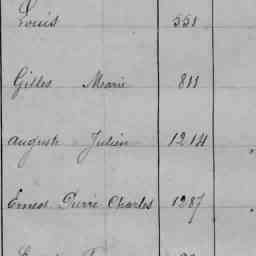 Louis 551
Gilles Marie 811
Auguste Julien 1214
Ernest Pierre Charles 1287